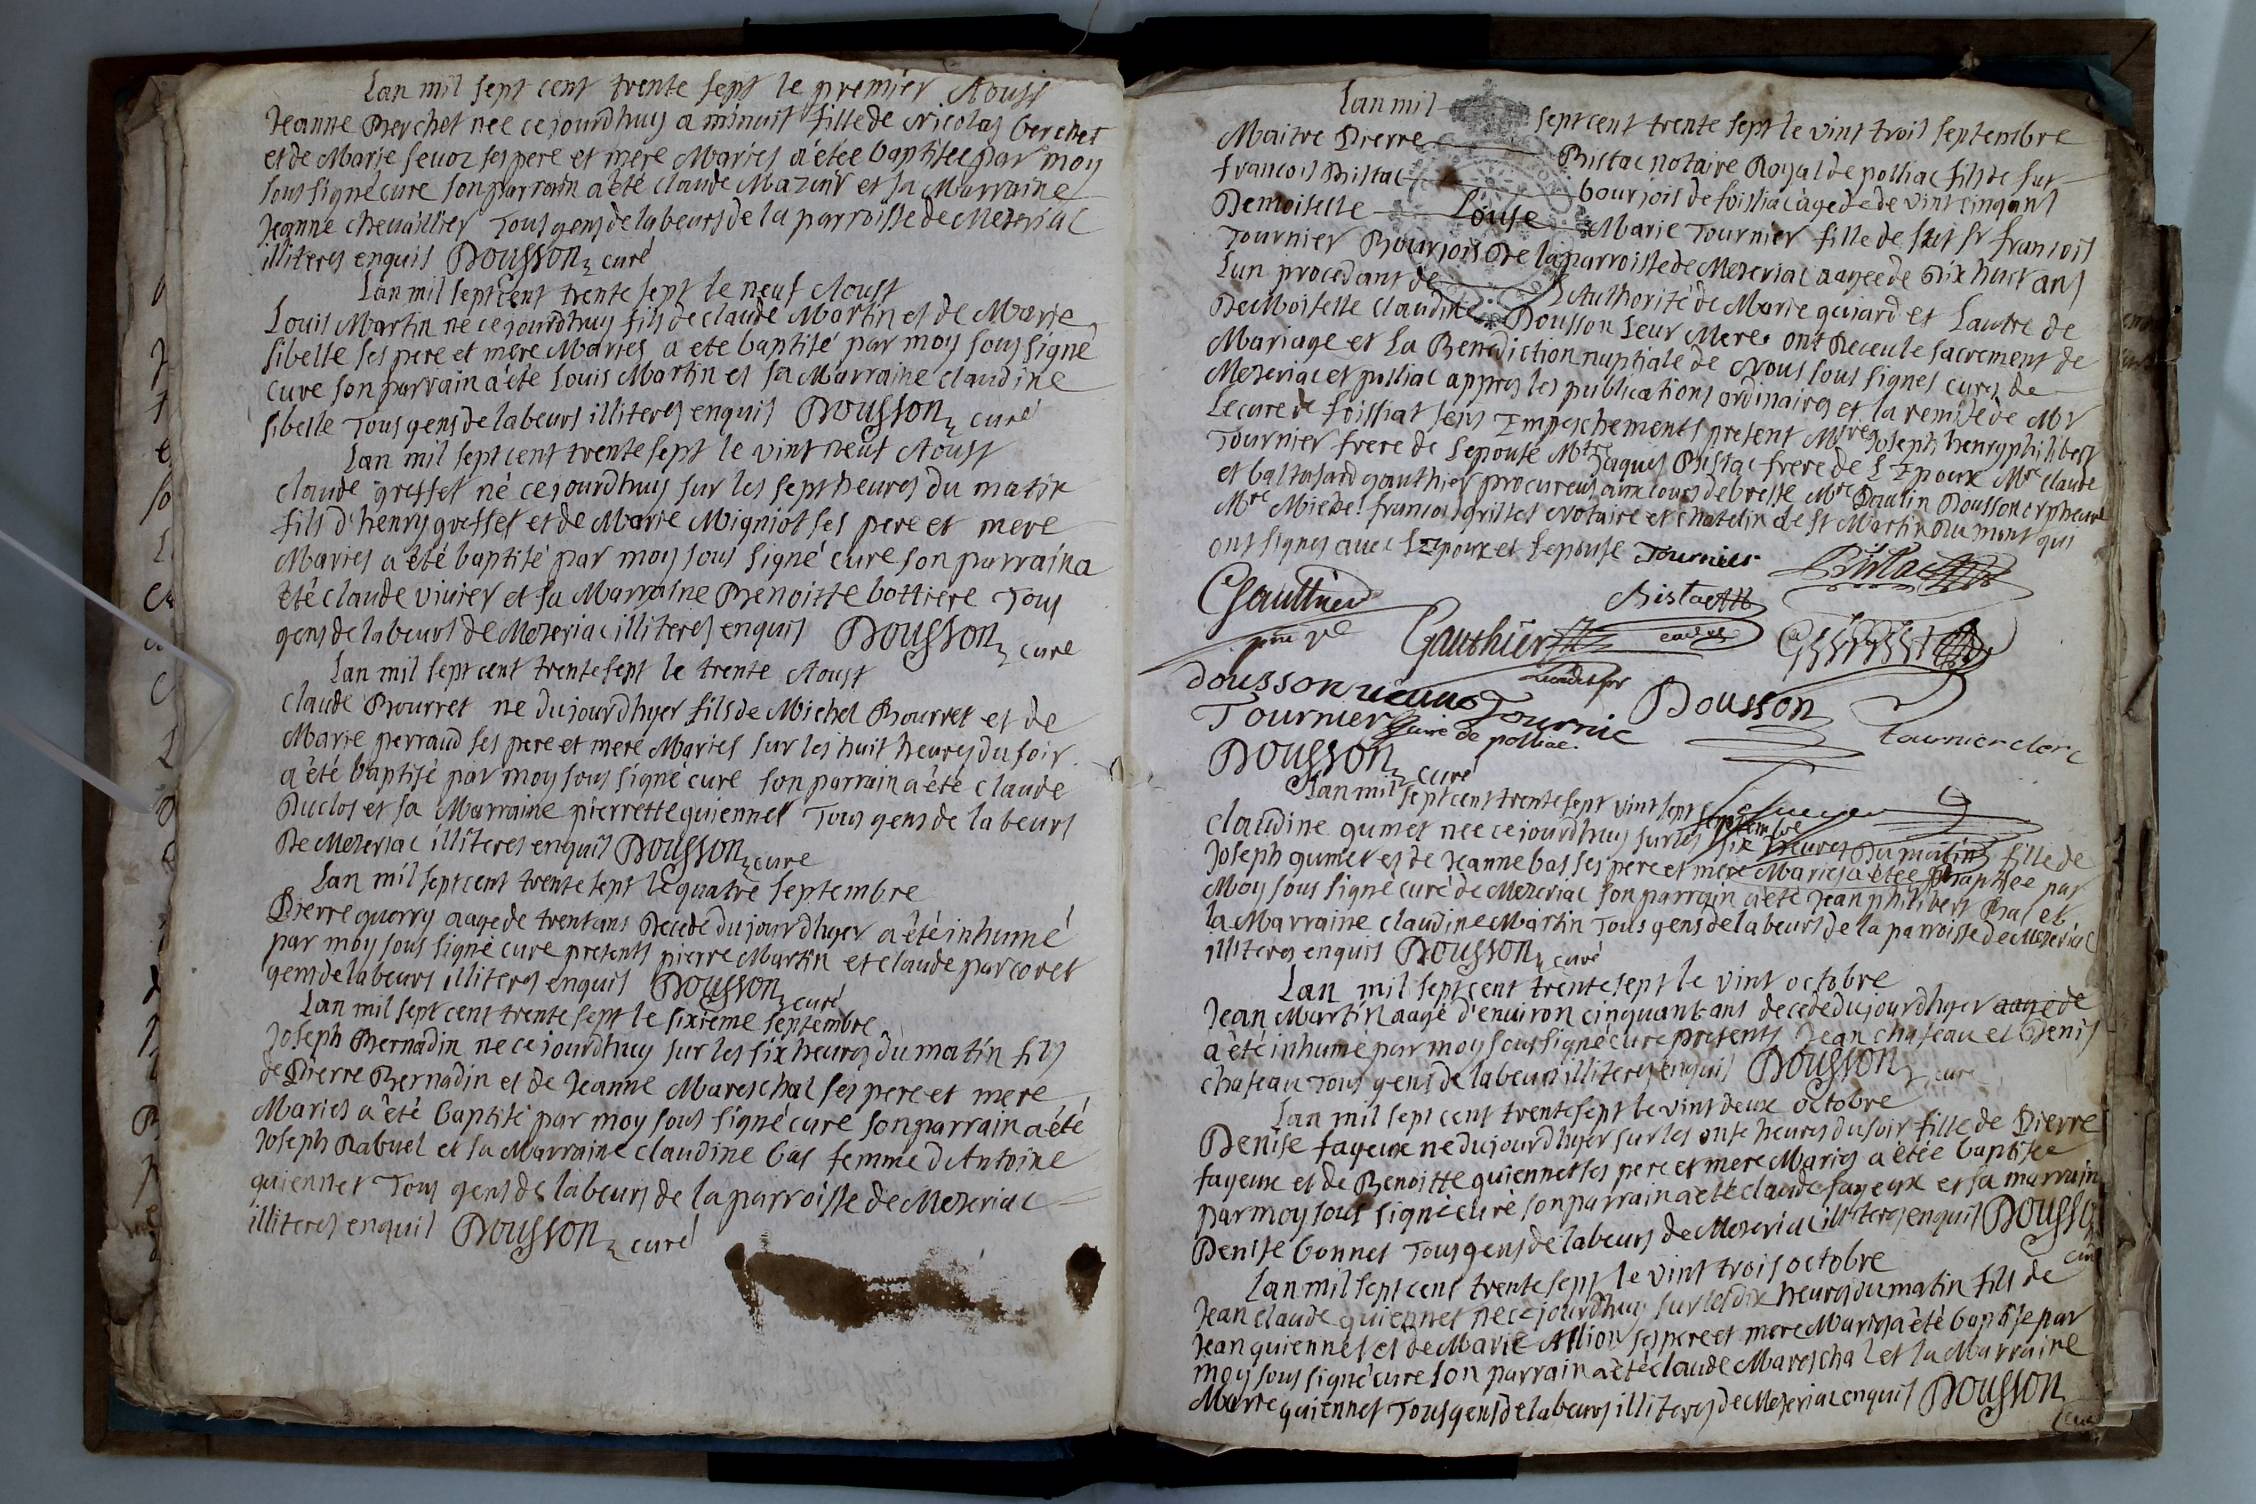 Lan mil sept cent trente sept le premier Aoust
Jeanne Berchet née cejourdhuy a minuit fille de Nicolas berchet
et de Marie sevoz ses pere et mere Mariés a étée baptisée par moy
sous signé curé son parrain a été claude Mazuir et sa Marraine
Jeanne chevaillier Tous gens de labeurs de la parroisse de Mezeriac
illiteres enquis Dousson curé
Lan mil sept cent trente sept le neuf Aoust
Louis Martin né cejourdhuy fils de claude Martin et de Marie
sibelle ses pere et mere Mariés a ete baptisé par moy sous signé
curé son parrain a été Louis Martin et sa Marraine claudine
sibelle Tous gens de labeurs illiteres enquis Dousson curé
Lan mil sept cent trente sept le vint neuf Aoust
claude greffet né cejourdhuy sur les sept heures du matin
fils d'henry greffet et de Marie Migniot ses pere et mere
Mariés a été baptisé par moy sous signé curé son parrain a
été claude vivier et sa Marraine Benoitte bottiere Tous
gens de labeurs de Mezeriac illiteres enquis Dousson curé
Lan mil sept cent trente sept le trente Aoust
claude Bourret ne dujourdhyer fils de Michel Bourret et de
Marie perraud ses pere et mere Mariés sur les huit heures du soir
a été baptisé par moy sous signé curé son parrain a été claude
Duclos et sa Marraine pierrette quiennet Tous gens de labeurs
De Mezeriac illiteres enquis Dousson curé
Lan mil sept cent trente sept le quatre septembre
Pierre querry aagé de trent ans Décédé dujourdhyer a été inhumé
par moy sous signé curé presents pierre Martin et claude parcoret
gens de labeurs illiteres enquis Dousson curé
Lan mil sept cent trente sept le sixieme septembre
Joseph Bernadin ne cejourdhuy sur les six heures du matin fils
de Pierre Bernadin et de Jeanne Mareschal ses pere et mere
Mariés a été baptisé par moy sous signé curé son parrain a été
Joseph Rabuel et sa Marraine claudine bas femme d'Antoine
quiennet Tous gens de labeurs de la parroisse de Mezeriac
illiteres enquis Dousson curé
Lan mil sept cent trente sept le vint trois septembre
Maitre Pierre Bistac notaire Royal de polliac fils de fut
francois Bistac bourjois de foissiac agé de de vint cinq ans
Demoiselle Louise Marie Tournier fille de fut sr francois
Tournier Bourjois De la parroisse de Mezeriac aagée de Dix huit ans
Lun procedant de Lauthorité de Marie guirard et Lautre de
DeMoiselle Claudine Dousson Leur Meres ont Receu le sacrement de
Mariage et La Benediction nuptiale de Nous sous signés curés de
Mezeriac et polliac appres les publications ordinaires et la remise de Mr
Le curé de foissiat sens Impeschements present Mre Joseph henry philibert
Tournier frere de Lepouse Mtre Jaques Bistac frere de L Epoux Mr claude
et baltasard gauthier procureurs aux cours de bresse Mre Paulin Dousson
Mre Michel francois grillet Notaire et chatelin de st Martin Du mont qui
ont signés avec L Epoux et Lepouse Tournier Bistac
Gautthier Bistac
Gauthier
dousson Tournie Dousson
Tournier curé de polliac. Tournier clerc
Dousson curé
Lan mil sept cent trente sept vint sept septembre
claudine gumet née cejourdhuy sur les six heures Du matin fille de
Joseph gumet et de Jeanne bas ses pere et mere Mariés a étée Baptisée par
Moy sous signé curé de Mezeriac son parrain a été Jean philibert Bas et
la Marraine claudine Martin Tous gens de labeurs de la parroisse de Mezeriac
illiteres enquis Dousson curé
Lan mil sept cent trente sept le vint octobre
Jean Martin aagé d'environ cinquant ans decedé dujourdhyer aagé de
a été inhumé par moy sous signé curé presents Jean chateau et Denis
chateau Tous gens de labeurs illiteres enquis Dousson curé
Lan mil sept cent trente sept le vint deux octobre
Denise fayeux né dujourdhyer sur les onse heures du soir fille de Pierre
fayeux et de Benoitte quiennet ses pere et mere Mariés a étée baptisée
par moy sous signé curé son parrain a été claude fayeux et sa marrain
Denise bonnet Tous gens de labeurs de Mezeriac illiteres enquis Dousso
curé
Lan mil sept cent trente sept le vint trois octobre
Jean claude quiennet né cejourdhuy sur les dix heures du matin fils de
Jean quiennet et de Marie Allion ses pere et mere Mariés a été baptisé par
moy sous signé curé son parrain a été claude Mareschal et la Marraine
Marie quiennet Tous gens de labeurs illiteres de Mezeriac enquis Dousson
curé